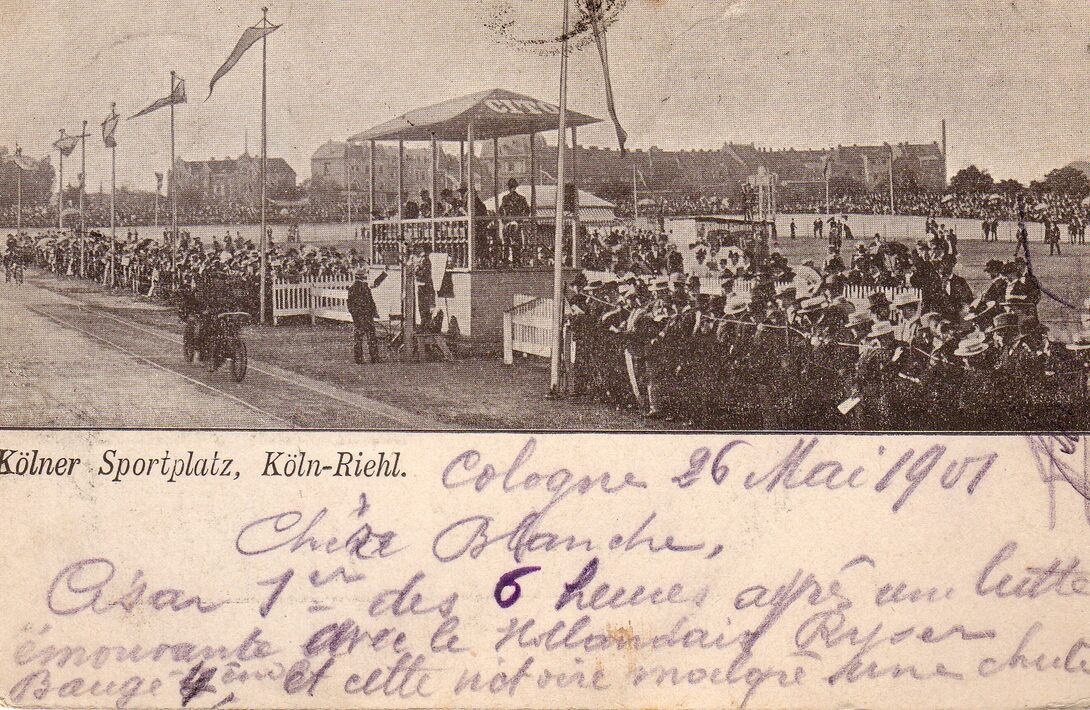 CITO
Kölner Sportplatz, Köln-Riehl.
Cologne 26 Mai 1901
Chère Blanche,
César 1er des 6 heures après une lutte
émouvante avec le Hollandais Ryser
Baugé 4ème et cette victoire malgré une chute